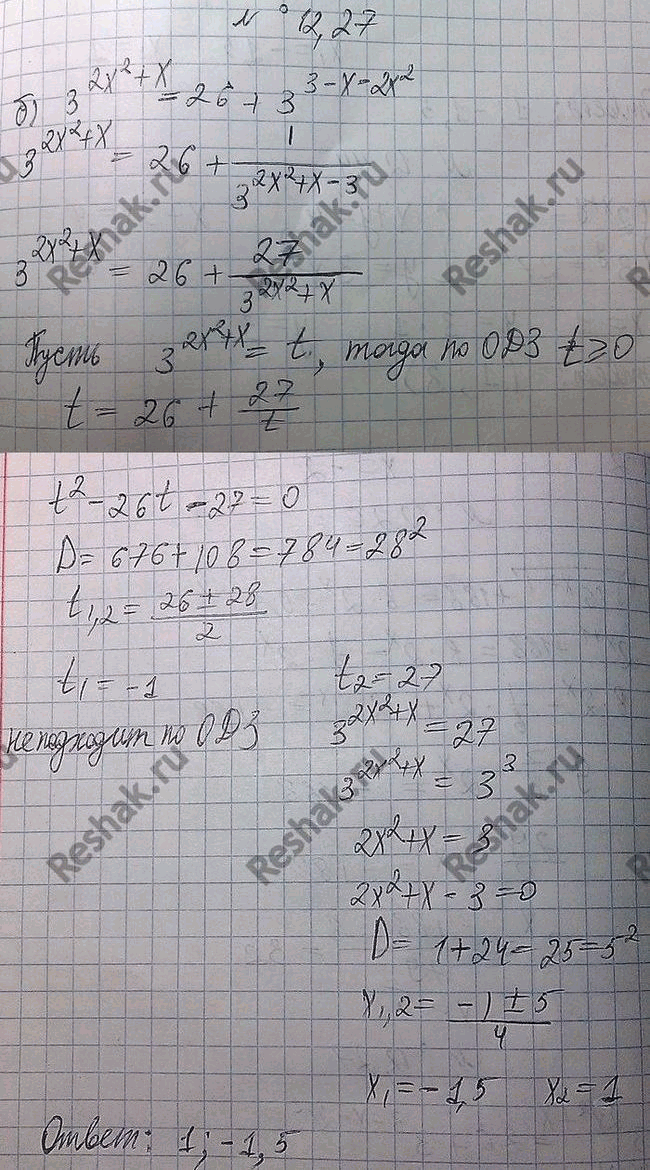 № 12,27
б) 3^(2x²+x) = 26 + 3^(3-x-2x²)
3^(2x²+x) = 26 + 1/3^(2x²+x-3)
3^(2x²+x) = 26 + 27/3^(2x²+x)
Пусть 3^(2x²+x) = t, тогда по ОДЗ t ≥ 0
t = 26 + 27/t
t² - 26t - 27 = 0
D = 676 + 108 = 784 = 28²
t₁,₂ = (26 ± 28)/2
t₁ = -1
не подходит по ОДЗ
t₂ = 27
3^(2x²+x) = 27
3^(2x²+x) = 3³
2x²+x = 3
2x²+x - 3 = 0
D = 1 + 24 = 25 = 5²
x₁,₂ = (-1 ± 5)/4
x₁ = -1,5 x₂ = 1
Ответ: 1; -1,5
Reshak.ru
Reshak.ru
Reshak.ru
Reshak.ru